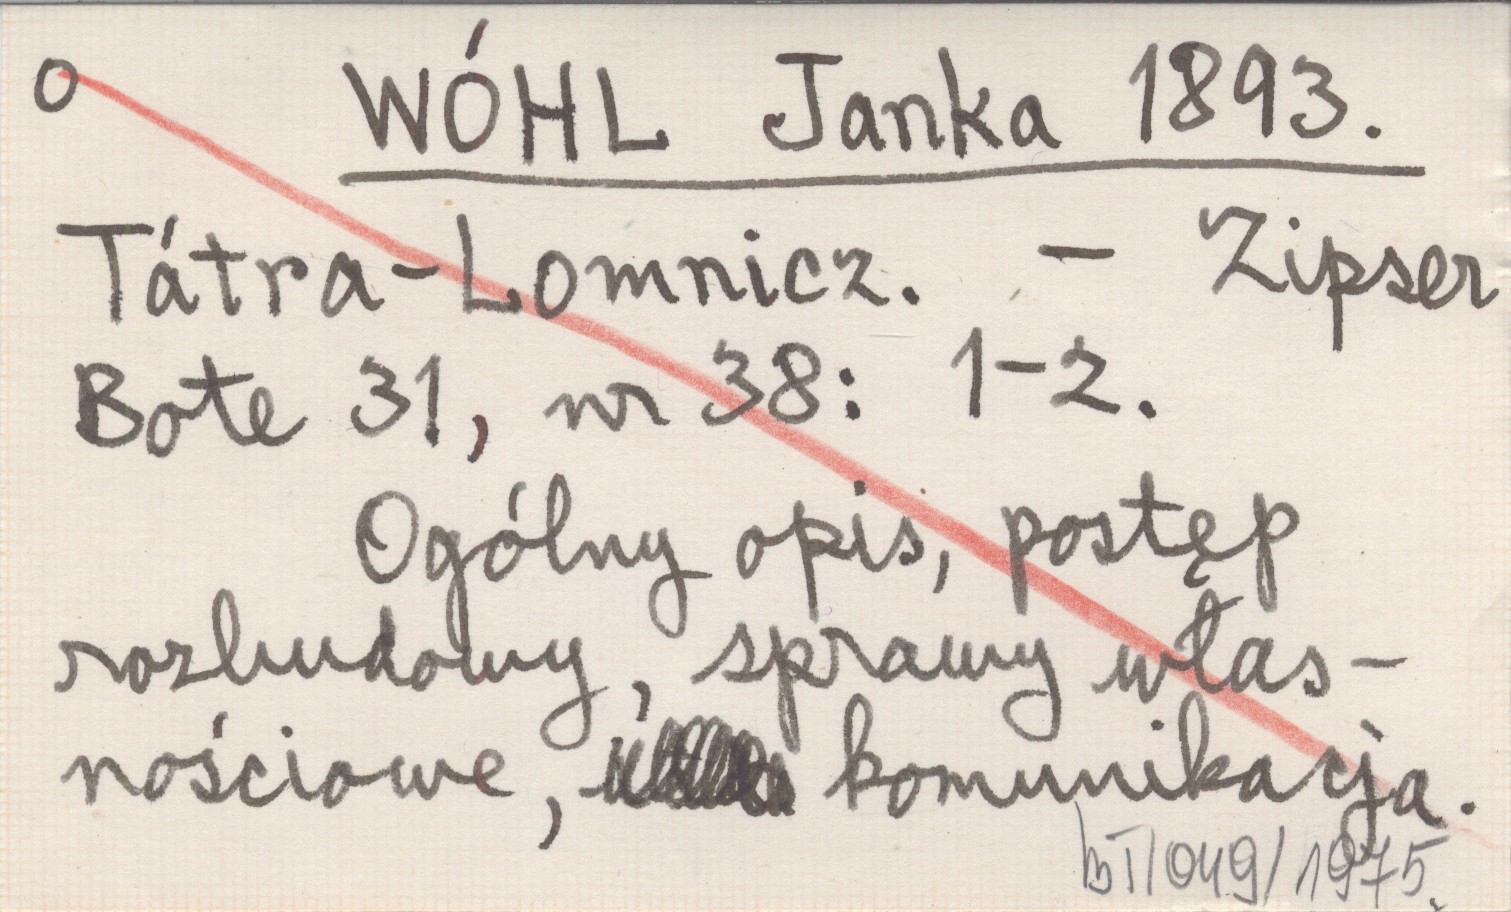 O WÓHL Janka 1893.
Tátra-Lomnicz. - Zipser
Bote 31, nr 38: 1-2.
Ogólny opis, postęp
rozbudowy, sprawy włas-
nościowe, komunikacja.
BT/049/1975.